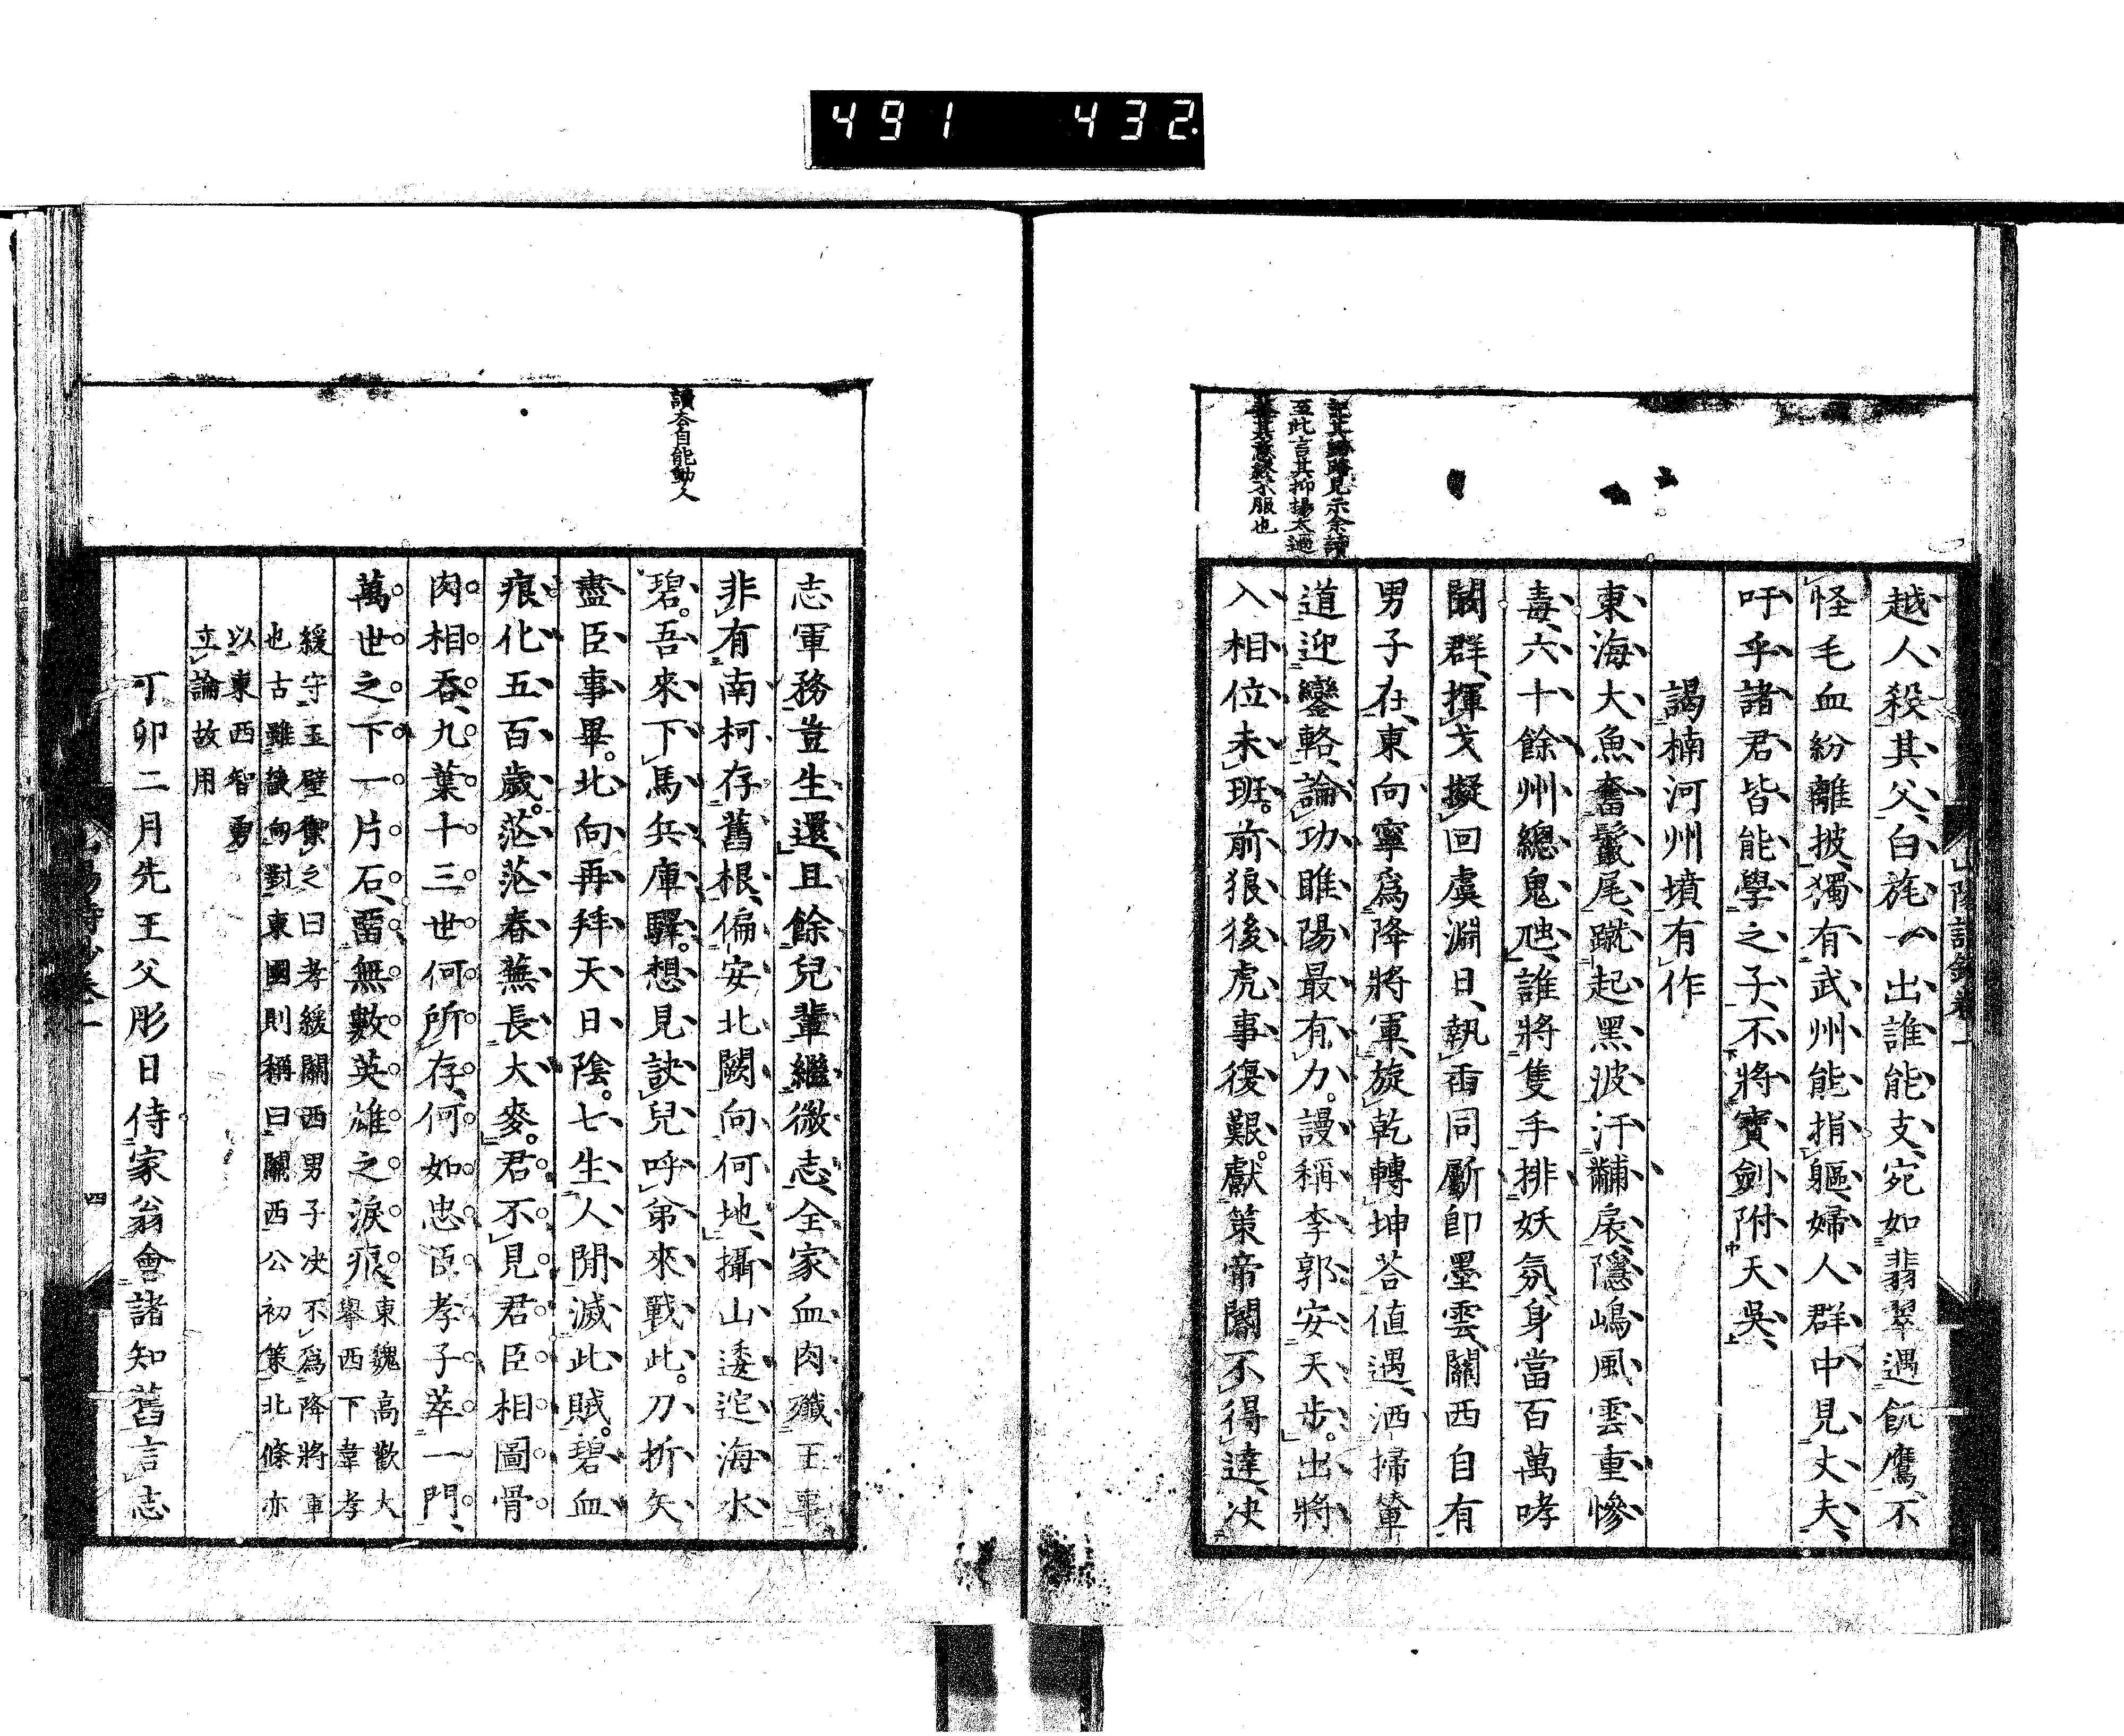 491 432.
越人殺其父、白旄一出誰能支、宛如翡翠遇飢鷹、不
怪毛血紛離披、獨有武州能捐軀、婦人群中見丈夫、
吁乎諸君皆能學之子、不將寶劍附天吳、
謁楠河州墳有作
東海大魚奮鬣尾、蹴起黑波汙黼扆、隱嶋風雲重慘
毒、六十餘州總鬼虺、誰將隻手排妖氛、身當百萬哮
闞群、揮戈擬回虞淵日、執臿同斸即墨雲、關西自有
男子在、東向寧爲降將軍、旋乾轉坤荅値遇、洒掃輦
道迎鑾輅、論功睢陽最有力。謾稱李郭安天步。出將
入相位未班。前狼後虎事復艱。獻策帝閽不得達、决
至此言其抑揚太過
志軍務豈生還、且餘兒輩繼微志、全家血肉殲王事、
非有南柯存舊根、偏安北闕向何地、攝山逶迤海水
碧。吾來下馬兵庫驛。想見訣兒呼弟來戰此。刀折矢
盡臣事畢。北向再拜天日陰。七生人間滅此賊。碧血
痕化五百歲。茫茫春蕪長大麥。君不見君臣相圖骨
肉相吞、九葉十三世何所存、何如忠臣孝子萃一門、
萬世之下一片石、畱無數英雄之淚痕、東魏高歡大
擧西下韋孝
緩守玉壁禦之曰孝緩關西男子决不爲降將軍
也古雖讓向對東國則稱曰關西公初策北條亦
以東西智勇
立論故用
丁卯二月先王父彤日侍家翁會諸知舊言志
讀夲自能動人
四